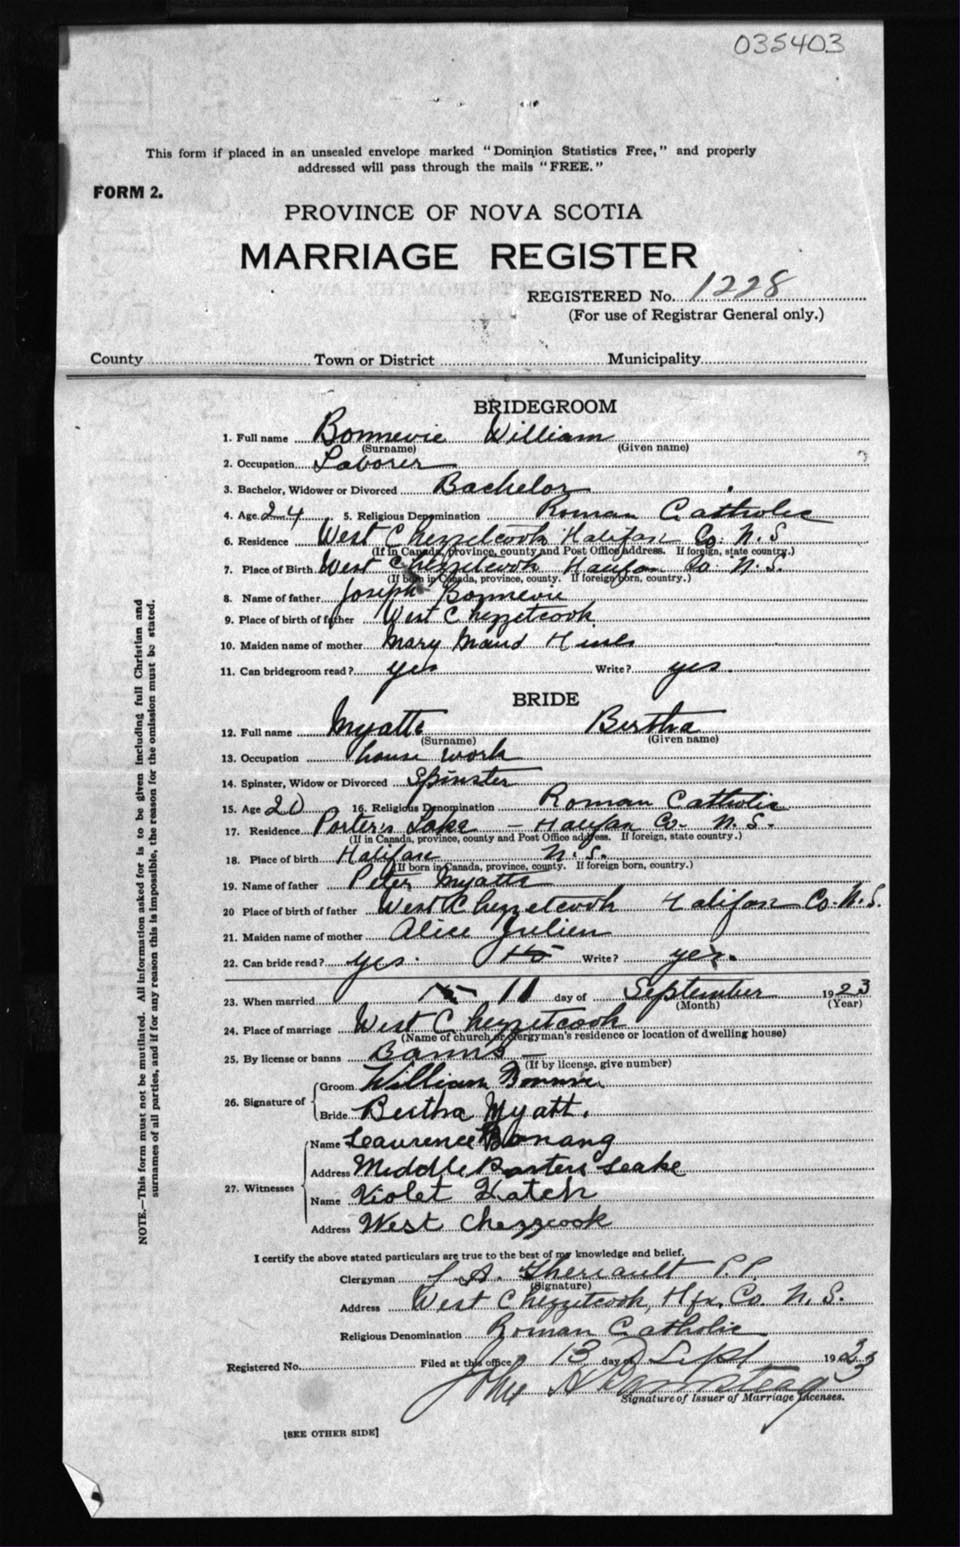 035403
This form if placed in an unsealed envelope marked "Dominion Statistics Free," and properly
addressed will pass through the mails "FREE."
FORM 2.
PROVINCE OF NOVA SCOTIA
MARRIAGE REGISTER
REGISTERED No. 1228
(For use of Registrar General only.)
County Town or District Municipality
BRIDEGROOM
1. Full name Bonnevie William
(Surname) (Given name)
2. Occupation Laborer
3. Bachelor, Widower or Divorced Bachelor
4. Age 24 5. Religious Denomination Roman Catholic
6. Residence West Chezzetcook Halifax Co. N.S.
(If in Canada, province, county and Post Office address. If foreign, state country.)
7. Place of Birth West Chezzetcook Halifax Co. N.S.
(If born in Canada, province, county. If foreign born, country.)
8. Name of father Joseph Bonnevie
9. Place of birth of father West Chezzetcook
10. Maiden name of mother Mary Maud
11. Can bridegroom read? yes Write? yes.
BRIDE
12. Full name Myatte Bertha
(Surname) (Given name)
13. Occupation house work
14. Spinster, Widow or Divorced Spinster
15. Age 20 16. Religious Denomination Roman Catholic
17. Residence Porter's Lake - Halifax Co. N.S.
(If in Canada, province, county and Post Office address. If foreign, state country.)
18. Place of birth Halifax N.S.
(If born in Canada, province, county. If foreign born, country.)
19. Name of father Peter Myatte
20 Place of birth of father West Chezzetcook Halifax Co. N.S.
21. Maiden name of mother Alice Julien
22. Can bride read? yes. Write? yes.
23. When married 11 day of September 1923
(Month) (Year)
24. Place of marriage West Chezzetcook
(Name of church or clergyman's residence or location of dwelling house)
25. By license or banns Banns —
(If by license, give number)
26. Signature of
Groom William
Bride Bertha Myatt.
27. Witnesses
Name Leaurence Bonang
Address Middle Porters Leake
Name Violet Hatch
Address West Chezzcook
I certify the above stated particulars are true to the best of my knowledge and belief.
Clergyman L. A. Theriault P.P.
(Signature)
Address West Chezzetcook, Hfx. Co. N.S.
Religious Denomination Roman Catholic
Registered No. Filed at this office 13 day of Sept 1923
John
Signature of Issuer of Marriage Licenses.
[SEE OTHER SIDE]
NOTE.—This form must not be mutilated. All information asked for is to be given including full Christian and
surnames of all parties, and if for any reason this is impossible, the reason for the omission must be stated.